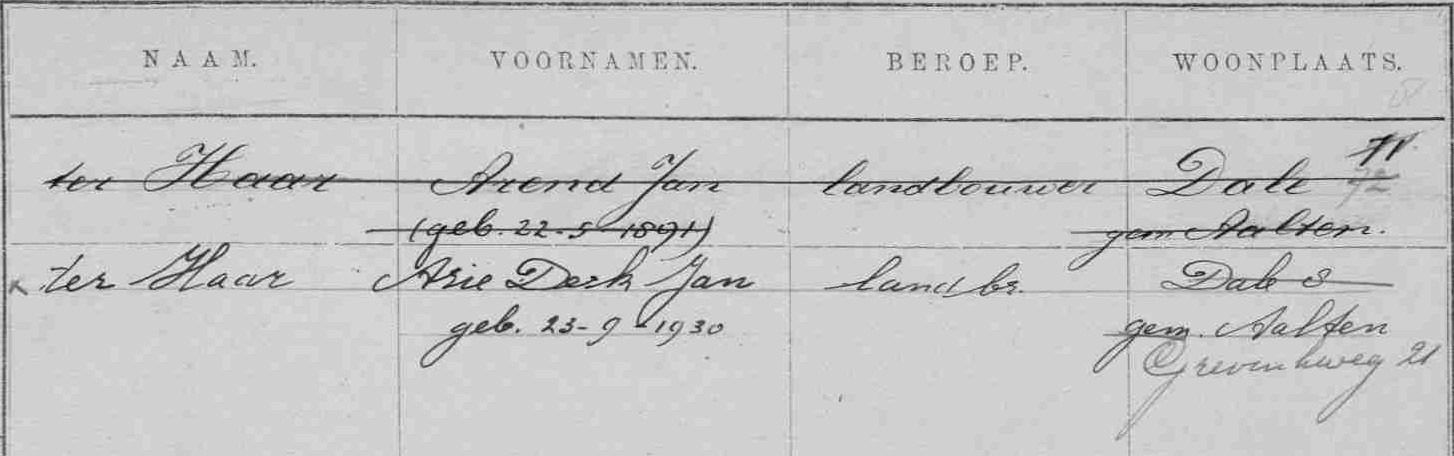 NAAM. VOORNAMEN. BEROEP. WOONPLAATS.
ter Haar Arend Jan landbouwer Dale 71 72
(geb. 22-5-1891) gem. Aalten.
ter Haar Arie Derk Jan landbr. Dale 8
geb. 23-9-1930 gem. Aalten
Grevinkweg 21